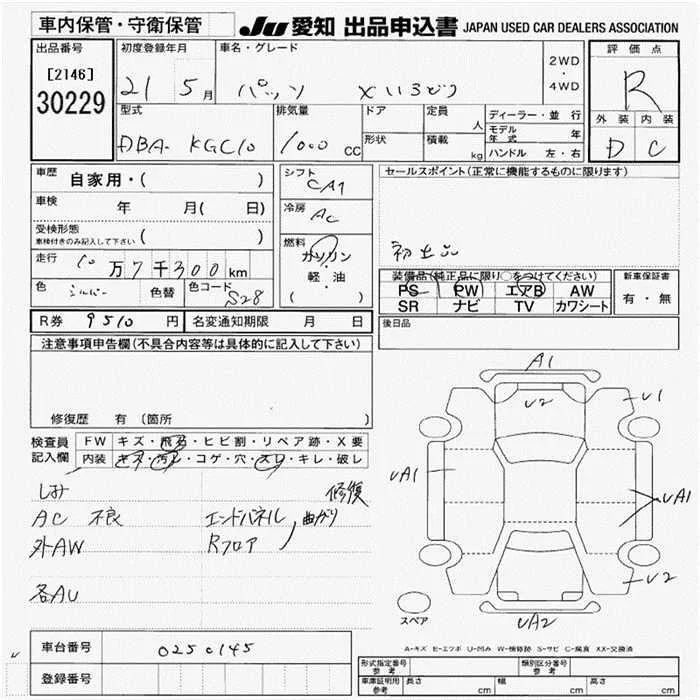 車内保管・守衛保管
JU 愛知 出品申込書 JAPAN USED CAR DEALERS ASSOCIATION
出品番号 初度登録年月 車名・グレード 2WD・4WD 評価点
[2146]
30229
21 5月 パッソ X R
型式 排気量 ドア 定員 人 ディーラー・並行 外装 内装
モデル年式 年
DBA- KGC10 1000 CC 形状 積載 kg ハンドル 左・右 D C
車歴 自家用・( ) シフト CA1 セールスポイント(正常に機能するものに限ります)
車検 年 月( 日) 冷房 AC
受検形態 ( )
車検付きのみ記入して下さい
燃料 ガソリン・軽・油 ( )
初出品
走行 10万7千300km
装備品(純正品に限り○をつけてください) 新車保証書
色 シルバー 色替 色コード S28
PS PW エアB AW 有・無
SR ナビ TV カワシート
R券 9510 円 名変通知期限 月 日 後日品
注意事項申告欄(不具合内容等は具体的に記入して下さい)
修復歴 有 (箇所
検査員記入欄 FW キズ・飛石・ヒビ割・リペア跡・X要
内装 キズ・汚レ・コゲ・穴・スレ・キレ・破レ
しみ 修復
AC 不良 エンドパネル 曲がり
外AW Rフロア
各AU
A1
U2
U1
UA1
UA1
U2
UA2
スペア
A-キズ E-エクボ U-凹み W-補修跡 S-サビ C-腐食 XX-交換済
車台番号 0250145
登録番号
形式指定番号 参考 類別区分番号 参考
車庫証明用 参考 長さ cm 幅 cm 高さ cm